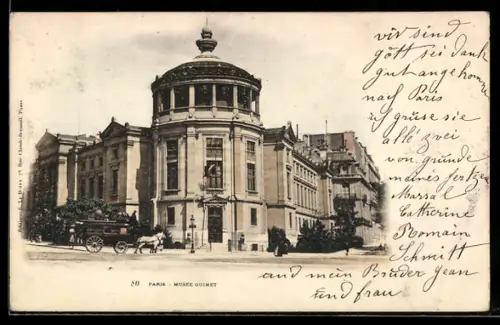 wir sind
gött sei dank
gut angekomme
nach Paris
ich grüse sie
alle zwei
von grunde
Marsal
Catherine
Romain
Schmitt
und mein Brüder Jean
und frau
80 PARIS - MUSÉE GUIMET